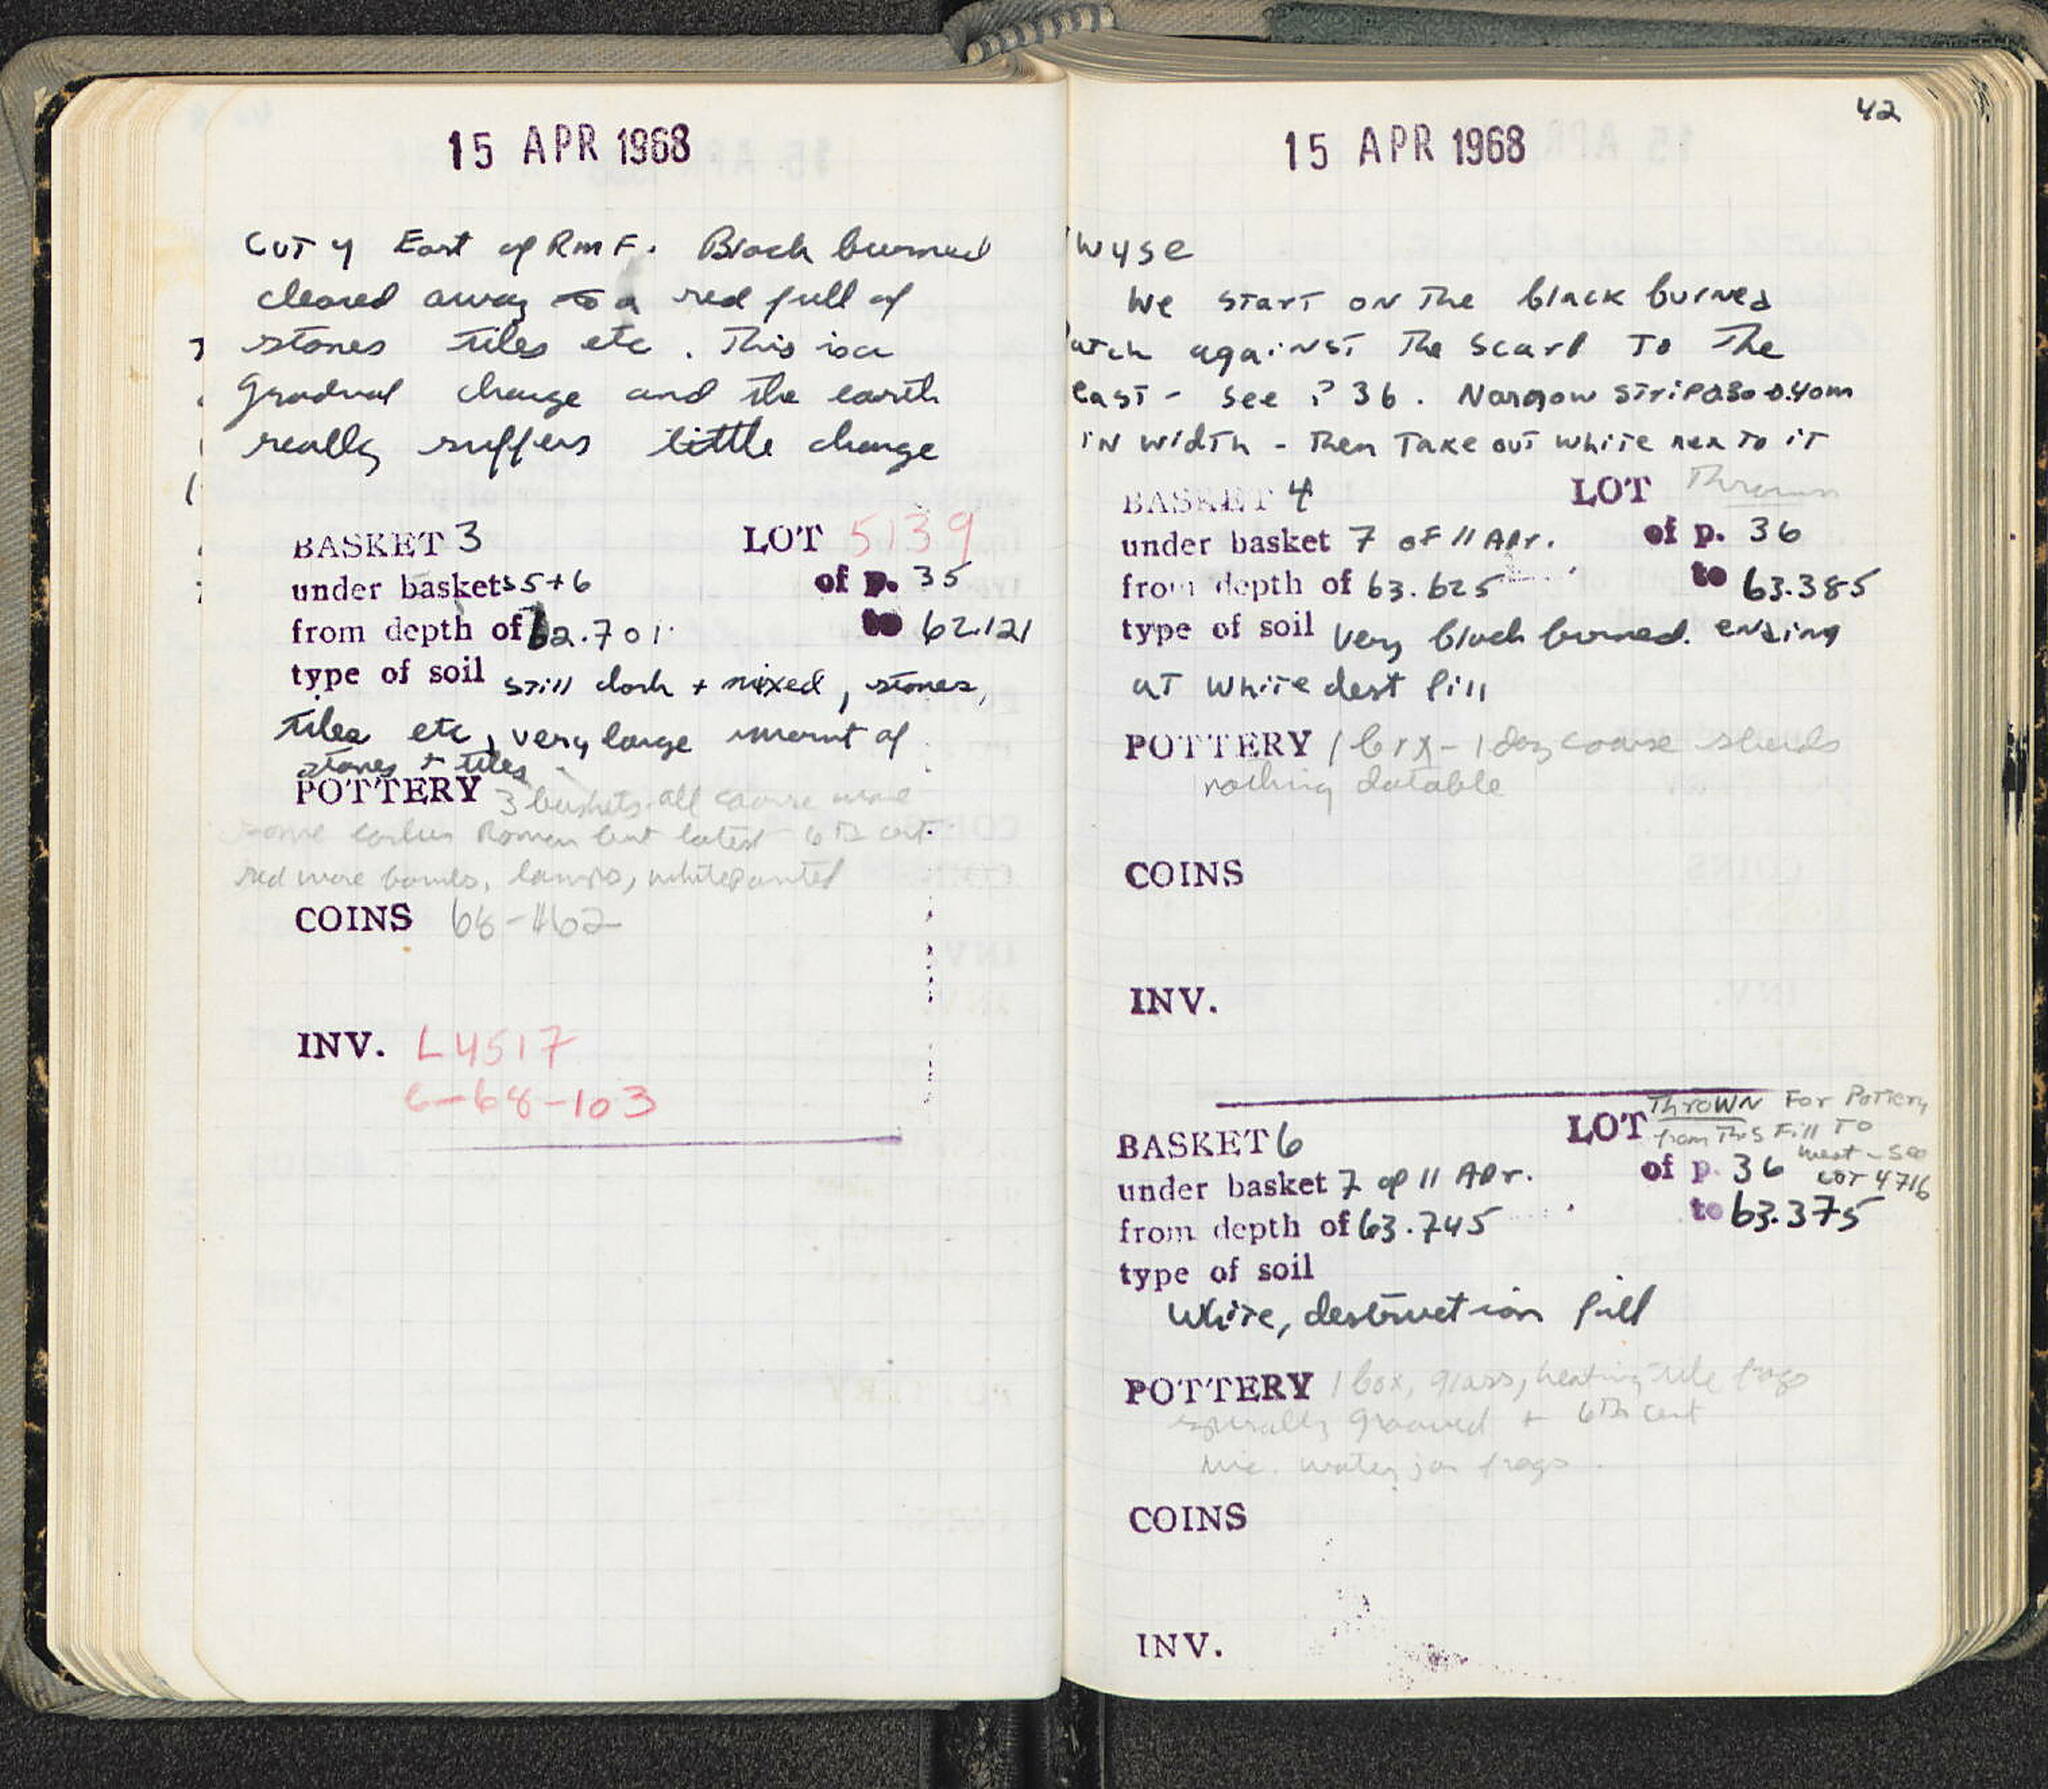 15 APR 1968
Cut 4 East of Rm F. Black burned
cleared away to a red full of
stones tiles etc. This is a
gradual change and the earth
really suffers little change
BASKET 3 LOT 5139
under baskets 5+6 of p. 35
from depth of 62.701 to 62.121
type of soil still dark + mixed, stones,
tiles etc, very large amount of
stones + tiles
POTTERY 3 baskets-all coarse ware
some earlier Roman but latest 6th cent.
red ware bowls, lamps, white painted
COINS 68-1162
INV. L4517
C-68-103
42
15 APR 1968
Wyse
We start on the black burned
against the scarp to the
east - see p 36. Narrow strip 0.30-0.40m
in width - then take out white nex to it
BASKET 4 LOT Thrown
under basket 7 of 11 Apr. of p. 36
from depth of 63.625 to 63.385
type of soil very black burned. ending
at white dest fill
POTTERY 1 box - 1 doz coarse sherds
nothing datable
COINS
INV.
BASKET 6 LOT Thrown For Pottery
from This Fill To
west - see
under basket 7 of 11 Apr. of p. 36 LOT 4716
from depth of 63.745 to 63.375
type of soil
White, destruction fill
POTTERY 1 box, glass, heating tile frags
spirally grooved + 6th cent
mic. water jar frags.
COINS
INV.